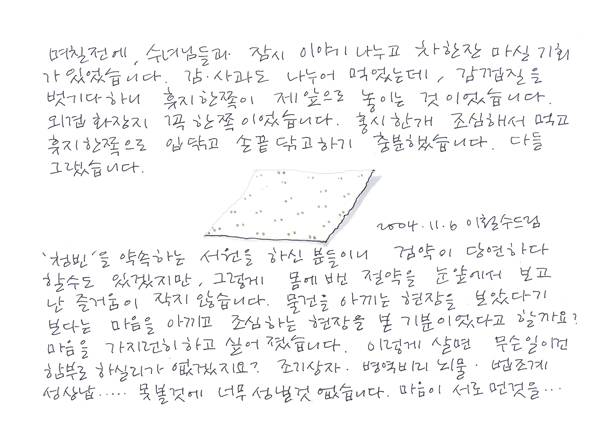 며칠전에, 수녀님들과 잠시 이야기 나누고 차한잔 마실 기회
가 있었습니다. 감·사과도 나누어 먹었는데, 감껍질을
벗기다 하니 휴지한쪽이 제 앞으로 놓이는 것이었습니다.
외겹 화장지 꼭 한쪽이었습니다. 홍시한개 조심해서 먹고
휴지한쪽으로 입닦고 손끝닦고 하기 충분했습니다. 다들
그랬습니다.
2004.11.6 이철수드림
'청빈'을 약속하는 서원을 하신 분들이니 검약이 당연하다
할수도 있겠지만, 그렇게 몸에 밴 절약을 눈앞에서 보고
난 즐거움이 작지 않습니다. 물건을 아끼는 현장을 보았다기
보다는 마음을 아끼고 조심하는 현장을 본 기분이었다고 할까요?
마음을 가지런히하고 싶어졌습니다. 이렇게 살면 무슨일이건
함부로 하실리가 없겠지요? 조기상자·병역비리 뇌물·법조계
성상납..... 못볼것에 너무 성낼것 없습니다. 마음이 서로 먼것을...